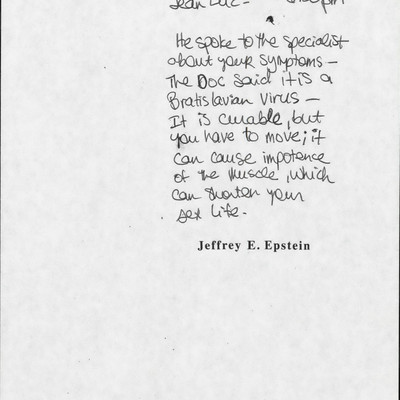 Jean Luc -
He spoke to the specialist
about your symptoms -
The Doc said it is a
Bratislavian Virus -
It is curable, but
you have to move; it
can cause impotence
of the muscle, which
can shorten your
sex life.
Jeffrey E. Epstein